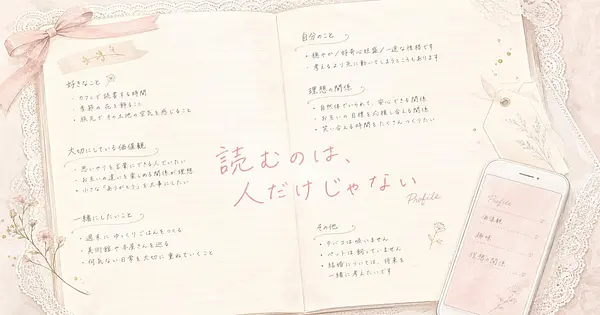 好きなこと
・カフェで読書する時間
・季節の花を飾ること
・旅先でその土地の空気を感じること
大切にしている価値観
・思いやりを言葉にできる人でいたい
・お互いの違いを楽しめる関係が理想
・小さな「ありがとう」を大事にしたい
一緒にしたいこと
・週末にゆっくりごはんをつくる
・美術館や本屋さんを巡る
・何気ない日常を大切に重ねていくこと
読むのは、
人だけじゃない
Profile
自分のこと
・穏やか/好奇心旺盛/一途な性格です
・考えるより先に動いてしまうところもあります
理想の関係
・自然体でいられて、安心できる関係
・お互いの目標を応援し合える関係
・笑い合える時間をたくさんつくりたい
その他
・タバコは吸いません
・ペットは飼っていません
・結婚については、将来を
一緒に考えたいです
Profile
価値観
趣味
理想の関係